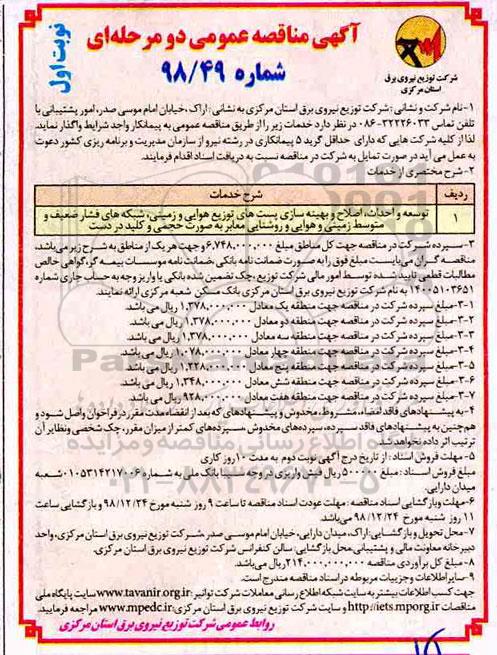 نوبت اول
آگهی مناقصه عمومی دو مرحله‌ای
شماره ۹۸/۴۹
شرکت توزیع نیروی برق
استان مرکزی
۱-نام شرکت و نشانی : شرکت توزیع نیروی برق استان مرکزی به نشانی : اراک، خیابان امام موسی صدر، امور پشتیبانی با
تلفن تماس ۳۲۲۲۶۰۳۳-۰۸۶ در نظر دارد خدمات زیر را از طریق مناقصه عمومی به پیمانکار واجد شرایط واگذار نماید.
لذا از کلیه شرکت هایی که دارای حداقل گرید ۵ پیمانکاری در رشته نیرو از سازمان مدیریت و برنامه ریزی کشور دعوت
به عمل می آید در صورت تمایل به شرکت در مناقصه نسبت به دریافت اسناد اقدام فرمایند.
۲-شرح مختصری از خدمات
ردیف شرح خدمات
۱ توسعه و احداث، اصلاح و بهینه سازی پست های توزیع هوایی و زمینی، شبکه های فشار ضعیف و
متوسط زمینی و هوایی و روشنایی معابر به صورت حجمی و کلید در دست
۳-سپرده شرکت در مناقصه جهت کل مناطق مبلغ ۶,۷۴۸,۰۰۰,۰۰۰ و جهت هر یک از مناطق به شرح زیر می باشد،
مناقصه گران می بایست مبلغ فوق را به صورت ضمانت نامه بانکی، ضمانت نامه موسسات بیمه گر، گواهی خالص
مطالبات قطعی تایید شده توسط امور مالی شرکت توزیع، چک تضمین شده بانکی یا واریز وجه به حساب جاری شماره
۱۴۰۰۵۱۰۳۶۵۱ به نام شرکت توزیع نیروی برق استان مرکزی بانک مسکن شعبه مرکزی ارائه نمایند.
۳-۱-مبلغ سپرده شرکت در مناقصه جهت منطقه یک معادل ۱,۳۷۸,۰۰۰,۰۰۰ ریال می باشد.
۳-۲-مبلغ سپرده شرکت در مناقصه جهت منطقه دو معادل ۱,۳۷۸,۰۰۰,۰۰۰ ریال می باشد.
۳-۳-مبلغ سپرده شرکت در مناقصه جهت منطقه سه معادل ۱,۳۷۸,۰۰۰,۰۰۰ ریال می باشد.
۳-۴-مبلغ سپرده شرکت در مناقصه جهت منطقه چهار معادل ۱,۰۷۸,۰۰۰,۰۰۰ ریال می باشد.
۳-۵-مبلغ سپرده شرکت در مناقصه جهت منطقه پنج معادل ۱,۲۲۸,۰۰۰,۰۰۰ ریال می باشد.
۳-۶-مبلغ سپرده شرکت در مناقصه جهت منطقه شش معادل ۱,۳۴۸,۰۰۰,۰۰۰ ریال می باشد.
۳-۷-مبلغ سپرده شرکت در مناقصه جهت منطقه هفت معادل ۹۲۸,۰۰۰,۰۰۰ ریال می باشد.
۴-به پیشنهادهای فاقد امضاء، مشروط، مخدوش و پیشنهادهای که بعد از انقضاء مدت مقرر در فراخوان واصل شود و
هم چنین به پیشنهادهای فاقد سپرده، سپرده های مخدوش، سپرده های کمتر از میزان مقرر، چک شخصی و نظایر آن
ترتیب اثر داده نخواهد شد.
۵-مهلت فروش اسناد : از تاریخ درج آگهی نوبت دوم به مدت ۱۰ روز کاری
مبلغ فروش اسناد : مبلغ ۵۰۰۰۰۰ ریال فیش واریزی در وجه سیبا بانک ملی به شماره ۰۱۰۵۳۱۴۲۱۷۰۰۶ شعبه
میدان دارایی.
۶-مهلت و بازگشایی اسناد مناقصه : مهلت عودت اسناد مناقصه تا ساعت ۹ روز شنبه مورخ ۹۸/۱۲/۲۴ و بازگشایی ساعت
۱۱ روز شنبه مورخ ۹۸/۱۲/۲۴ می باشد.
۷-محل تحویل و بازگشایی : اراک، میدان دارایی، خیابان امام موسی صدر، شرکت توزیع نیروی برق استان مرکزی، واحد
دبیرخانه معاونت مالی و پشتیبانی، محل بازگشایی: سالن کنفرانس شرکت توزیع نیروی برق استان مرکزی.
۸-مبلغ کل برآوردی مناقصه ۲۱۴,۰۰۰,۰۰۰,۰۰۰ ریال می باشد.
۹-سایر اطلاعات و جزییات مربوطه در اسناد مناقصه مندرج است.
جهت کسب اطلاعات بیشتر به سایت شبکه اطلاع رسانی معاملات شرکت توانیر: www.tavanir.org.ir سایت پایگاه ملی
مناقصات http://iets.mporg.ir و سایت شرکت توزیع نیروی برق استان مرکزی: www.mpedc.ir مراجعه فرمایید.
روابط عمومی شرکت توزیع نیروی برق استان مرکزی